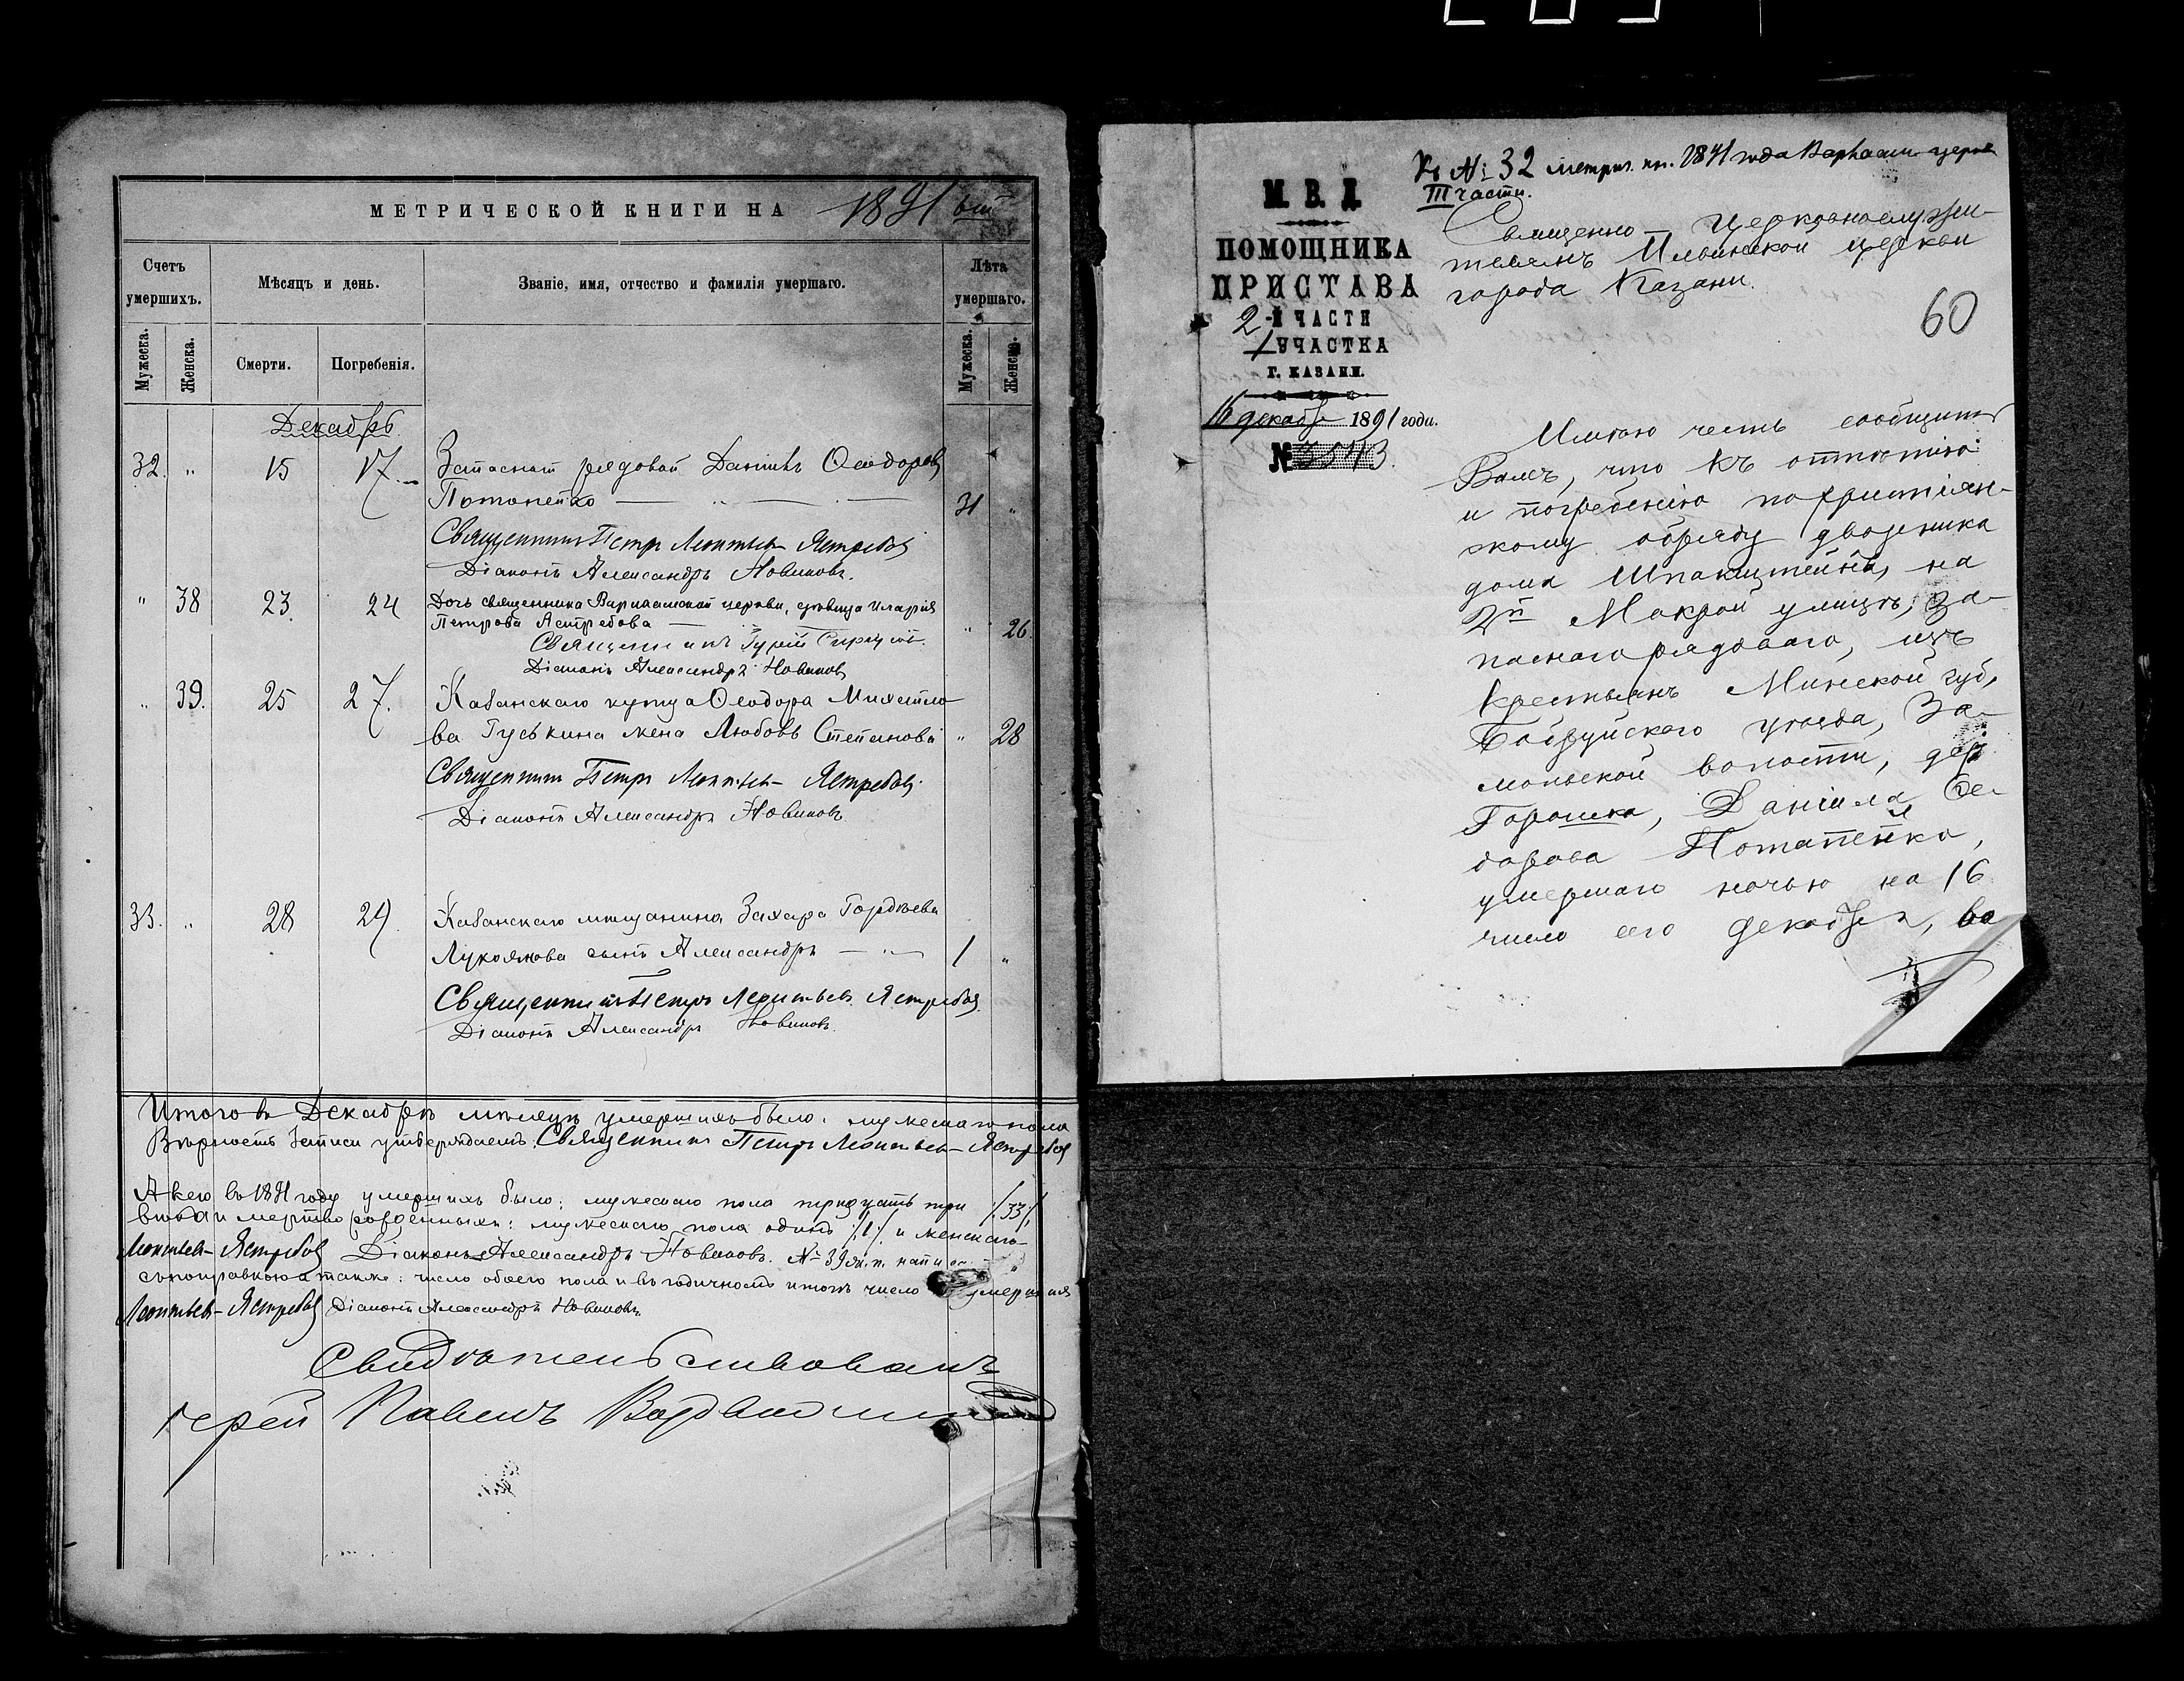 МЕТРИЧЕСКОЙ КНИГИ НА 1891 ый
Счетъ умершихъ.
Мѣсяцъ и день.
Званіе, имя, отчество и фамилія умершаго.
Лѣта умершаго.
Мужеска.
Женска.
Смерти.
Погребенія.
Мужеска.
Женска.
Декабрь
32. " 15 17. Запасный рядовой Даніилъ Ѳеодоровъ
Потопейко 31 "
Священникъ Петръ Леонтьев- Ястребовъ
Діаконъ Александръ Новиковъ.
" 38 23 24 Дочь священника Варлаамской церкви, дѣвица Иларія
Петрова Ястребова " 26.
Священникъ Гурій
Діаконъ Александръ Новиковъ
" 39. 25 27. Казанскаго купца Ѳеодора Михайло
ва Гуськина жена Любовь Степанова " 28
Священникъ Петръ Леонтьев- Ястребовъ.
Діаконъ Александръ Новиковъ
33. " 28 29. Казанскаго мѣщанина Захара Гордѣева
Лукоянова сынъ Александръ 1 "
Священникъ Петръ Леонтьевъ Ястребовъ
Діаконъ Александръ Новиковъ.
Итого въ Декабрѣ мѣсяцѣ умершихъ было: мужескаго пола
Вѣрность записи утверждаемъ: Священникъ Петръ Леонтьев- Ястребовъ
А всего въ 1891 году умершихъ было: мужескаго пола тридцать три /33/,
мертворожденныхъ: мужескаго пола одинъ /1/ и женскаго-
Леонтьев- Ястребовъ Діаконъ Александръ Новиковъ. № 39
а также: число обоего пола и въ годичномъ итогѣ число умершихъ
Леонтьев- Ястребовъ Діаконъ Александръ Новиковъ.
Свидѣтельствовалъ
іерей Павелъ
Къ № 32 метрич. кн. 1891 года Варлаам. церк.
III части.
М. В. Д.
ПОМОЩНИКА
ПРИСТАВА
2-Й ЧАСТИ
1 УЧАСТКА
Г. КАЗАНИ.
16 декабр 1891 года.
№ 3543.
Священно - Церковнослужи-
телямъ Ильинской церкви
города Казани.
60
Имѣю честь сообщить
Вамъ, что къ отпѣтію
и погребенію по христіян-
скому обряду дворника
дома на
2й Мокрой улицѣ, за-
паснаго рядоваго, изъ
крестьянъ Минской губ,
Бобруйскаго уѣзда, За-
мольской волости, дер
Горошка, Даніила Ѳе-
дорова Потапейко,
умершаго ночью на 16
число сего декабря, во